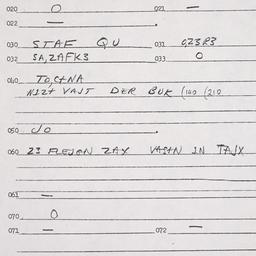 020 O 021 —
022 —
030 STAF QU 031 0,23R3
032 SA,ZAFK3 033 O
040 TO,C+NA
NIZT VAST DER BUK (140 (210
050 do
060 23 FLEJEN ZAX VASTN IN TAJX
061 —
070 O
071 — 072 —